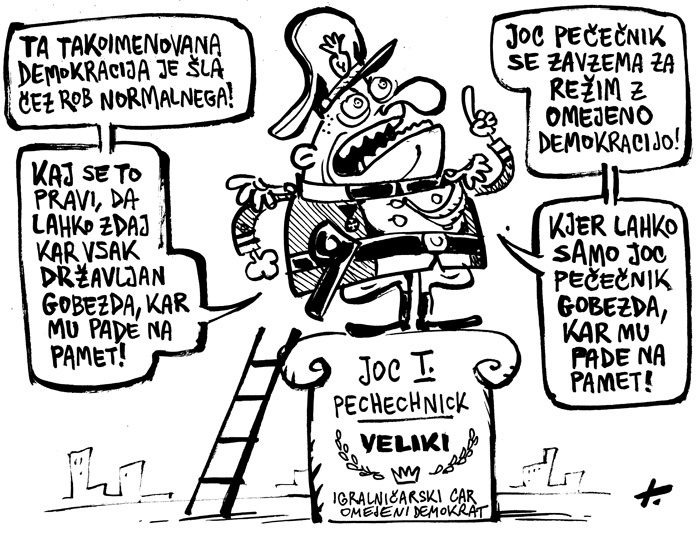 TA TAKOIMENOVANA
DEMOKRACIJA JE ŠLA
ČEZ ROB NORMALNEGA!
KAJ SE TO
PRAVI, DA
LAHKO ZDAJ
KAR VSAK
DRŽAVLJAN
GOBEZDA, KAR
MU PADE NA
PAMET!
JOC PEČEČNIK
SE ZAVZEMA ZA
REŽIM Z
OMEJENO
DEMOKRACIJO!
KJER LAHKO
SAMO JOC
PEČEČNIK
GOBEZDA,
KAR MU
PADE NA
PAMET!
JOC I.
PECHECHNICK
VELIKI
IGRALNIČARSKI CAR
OMEJENI DEMOKRAT